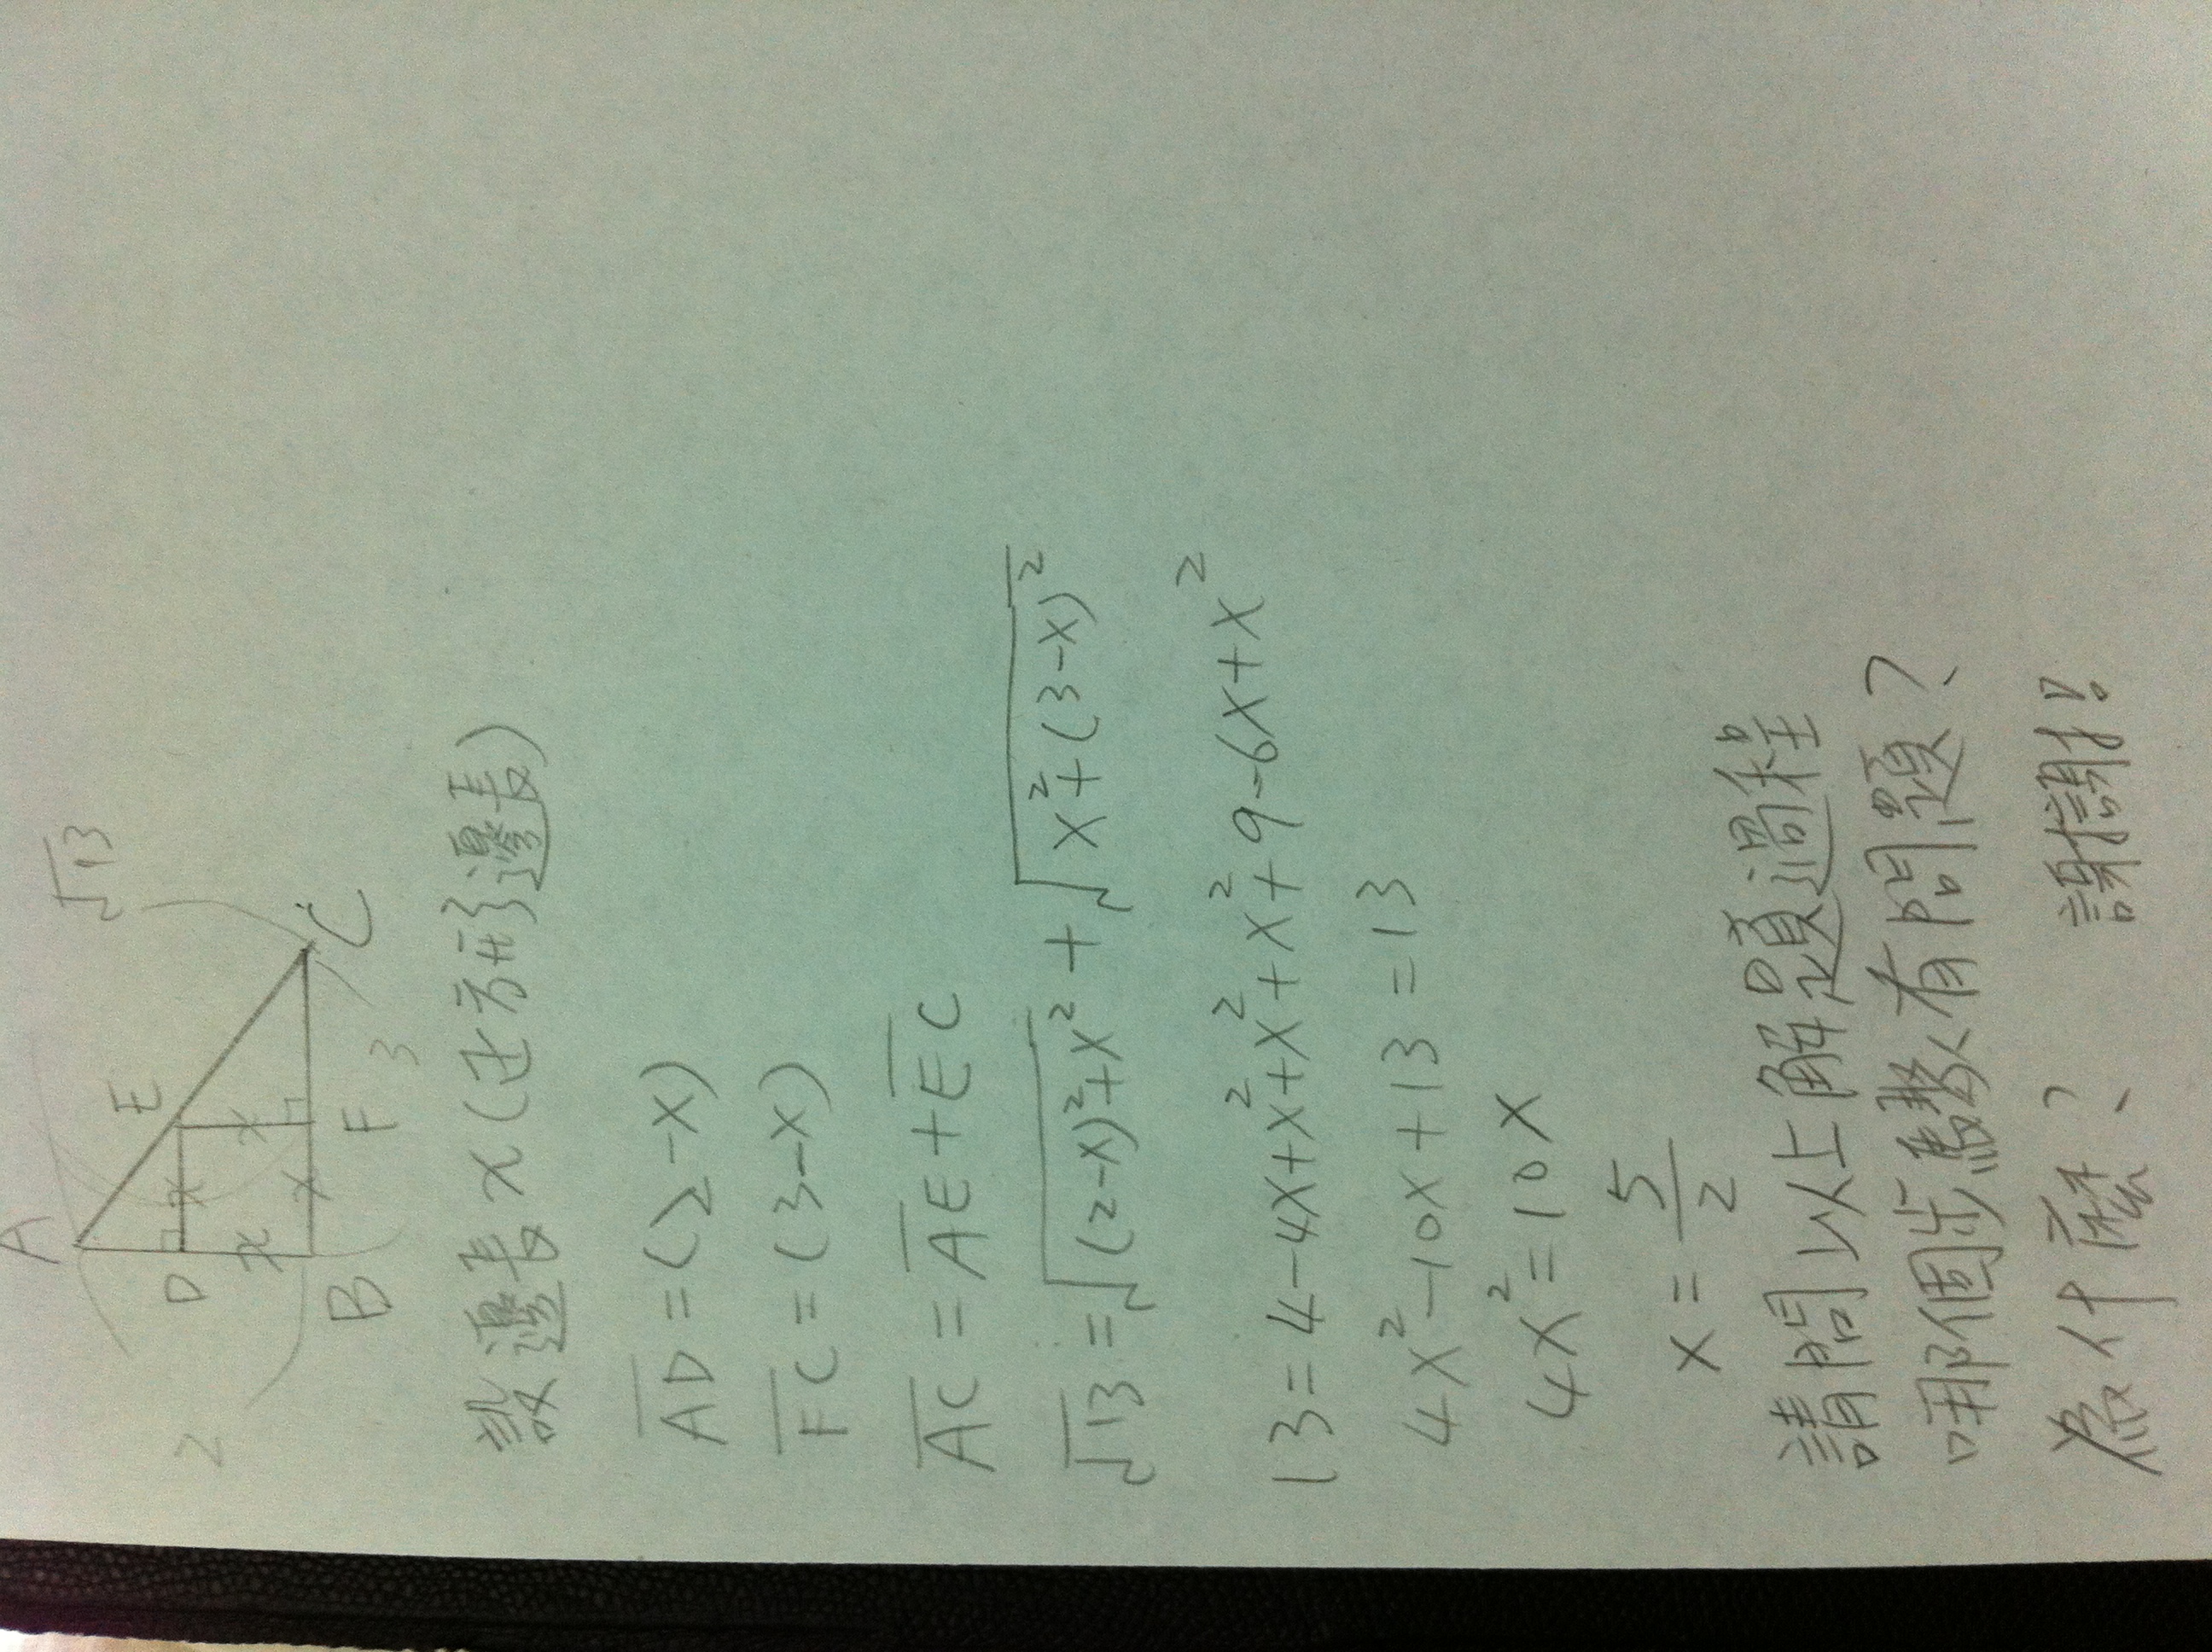 A
√13
E
D
x
2
x
x
x
B
F
C
3
設邊長 x (正方形邊長)
AD = (2-x)
FC = (3-x)
AC = AE + EC
√13 = √(2-x)²+x² + √x²+(3-x)²
13 = 4-4x+x²+x²+x²+9-6x+x²
4x²-10x+13 = 13
4x² = 10x
x = 5/2
請問以上解題過程
哪個步驟有問題？
為什麼？ 謝謝!